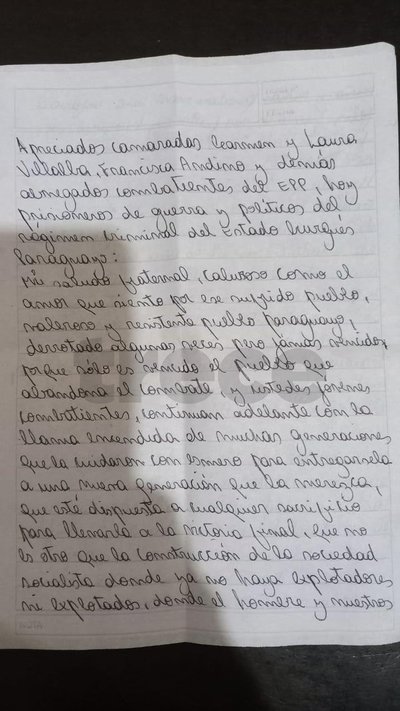 Apreciados camaradas Carmen y Laura
Villalba, Francisca Andino y demás
abnegados combatientes del EPP, hoy
prisioneros de guerra y políticos del
régimen criminal del Estado burgués
Paraguayo:
Mi saludo fraternal, caluroso como el
amor que siento por ese sufrido pueblo,
valeroso y resistente pueblo paraguayo,
derrotado algunas veces pero jamás vencido,
porque sólo es vencido el pueblo que
abandona el combate, y ustedes jóvenes
combatientes, continuan adelante con la
llama encendida de muchas generaciones
que la cuidaron con esmero para entregarsela
a una nueva generación que la merezca,
que esté dispuesta a cualquier sacrificio
para llevarla a la victoria final, que no
es otro que la construcción de la sociedad
socialista donde ya no haya explotadores
ni explotados, donde el hombre y nuestros
trece